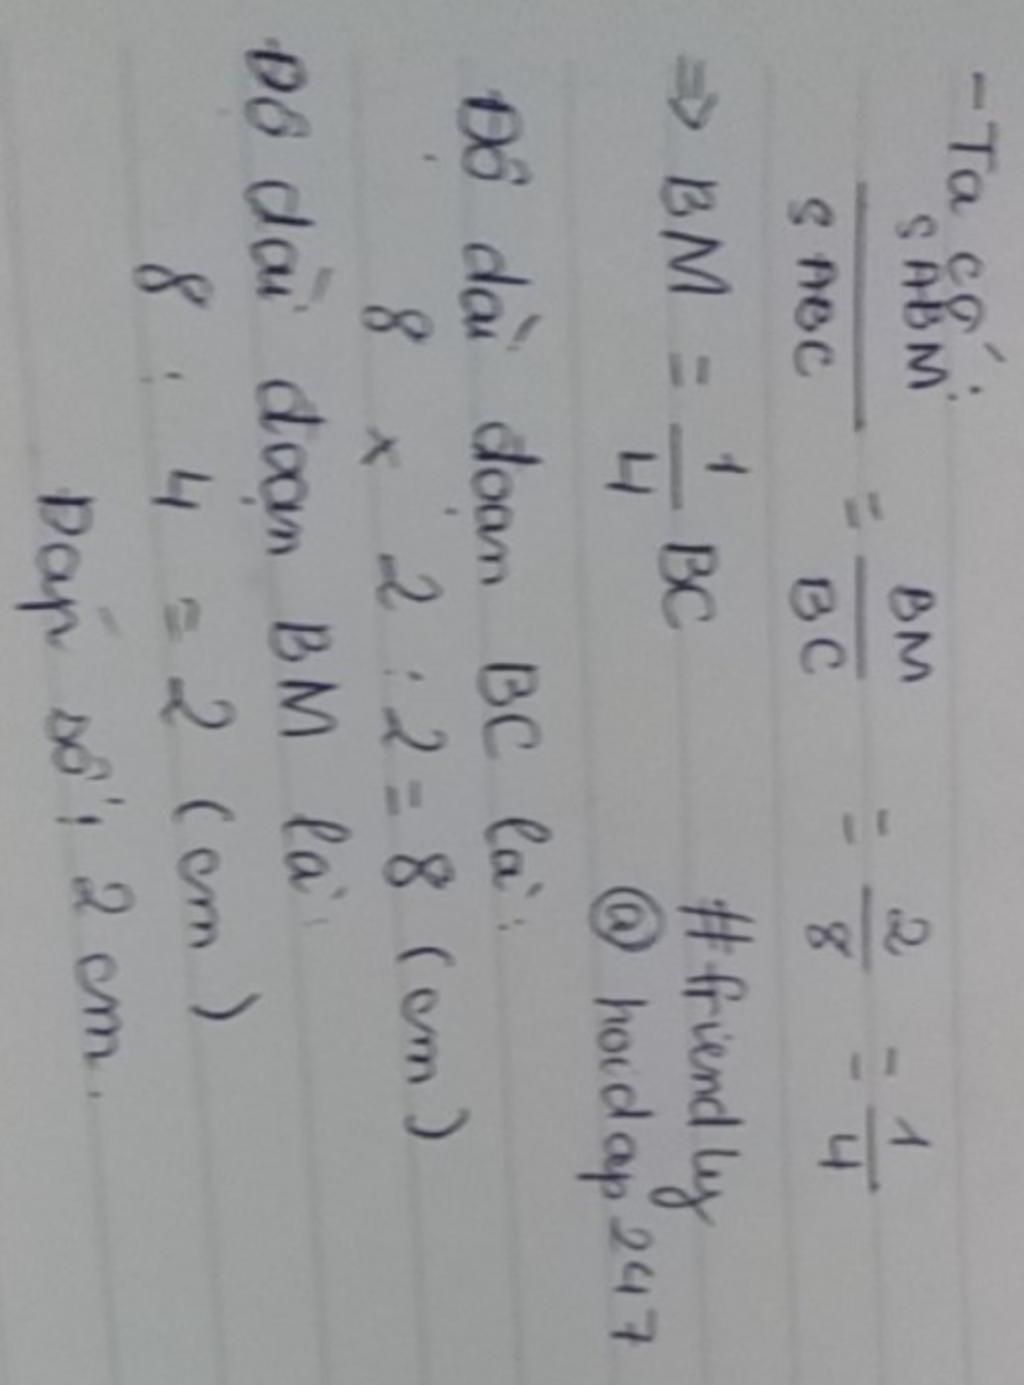 - Ta có:
S ABM / S ABC = BM / BC = 2 / 8 = 1 / 4
⇒ BM = 1/4 BC #friendly
@ hoidap247
Độ dài đoạn BC là:
8 x 2 : 2 = 8 (cm)
Độ dài đoạn BM là:
8 : 4 = 2 (cm)
Đáp số: 2 cm.